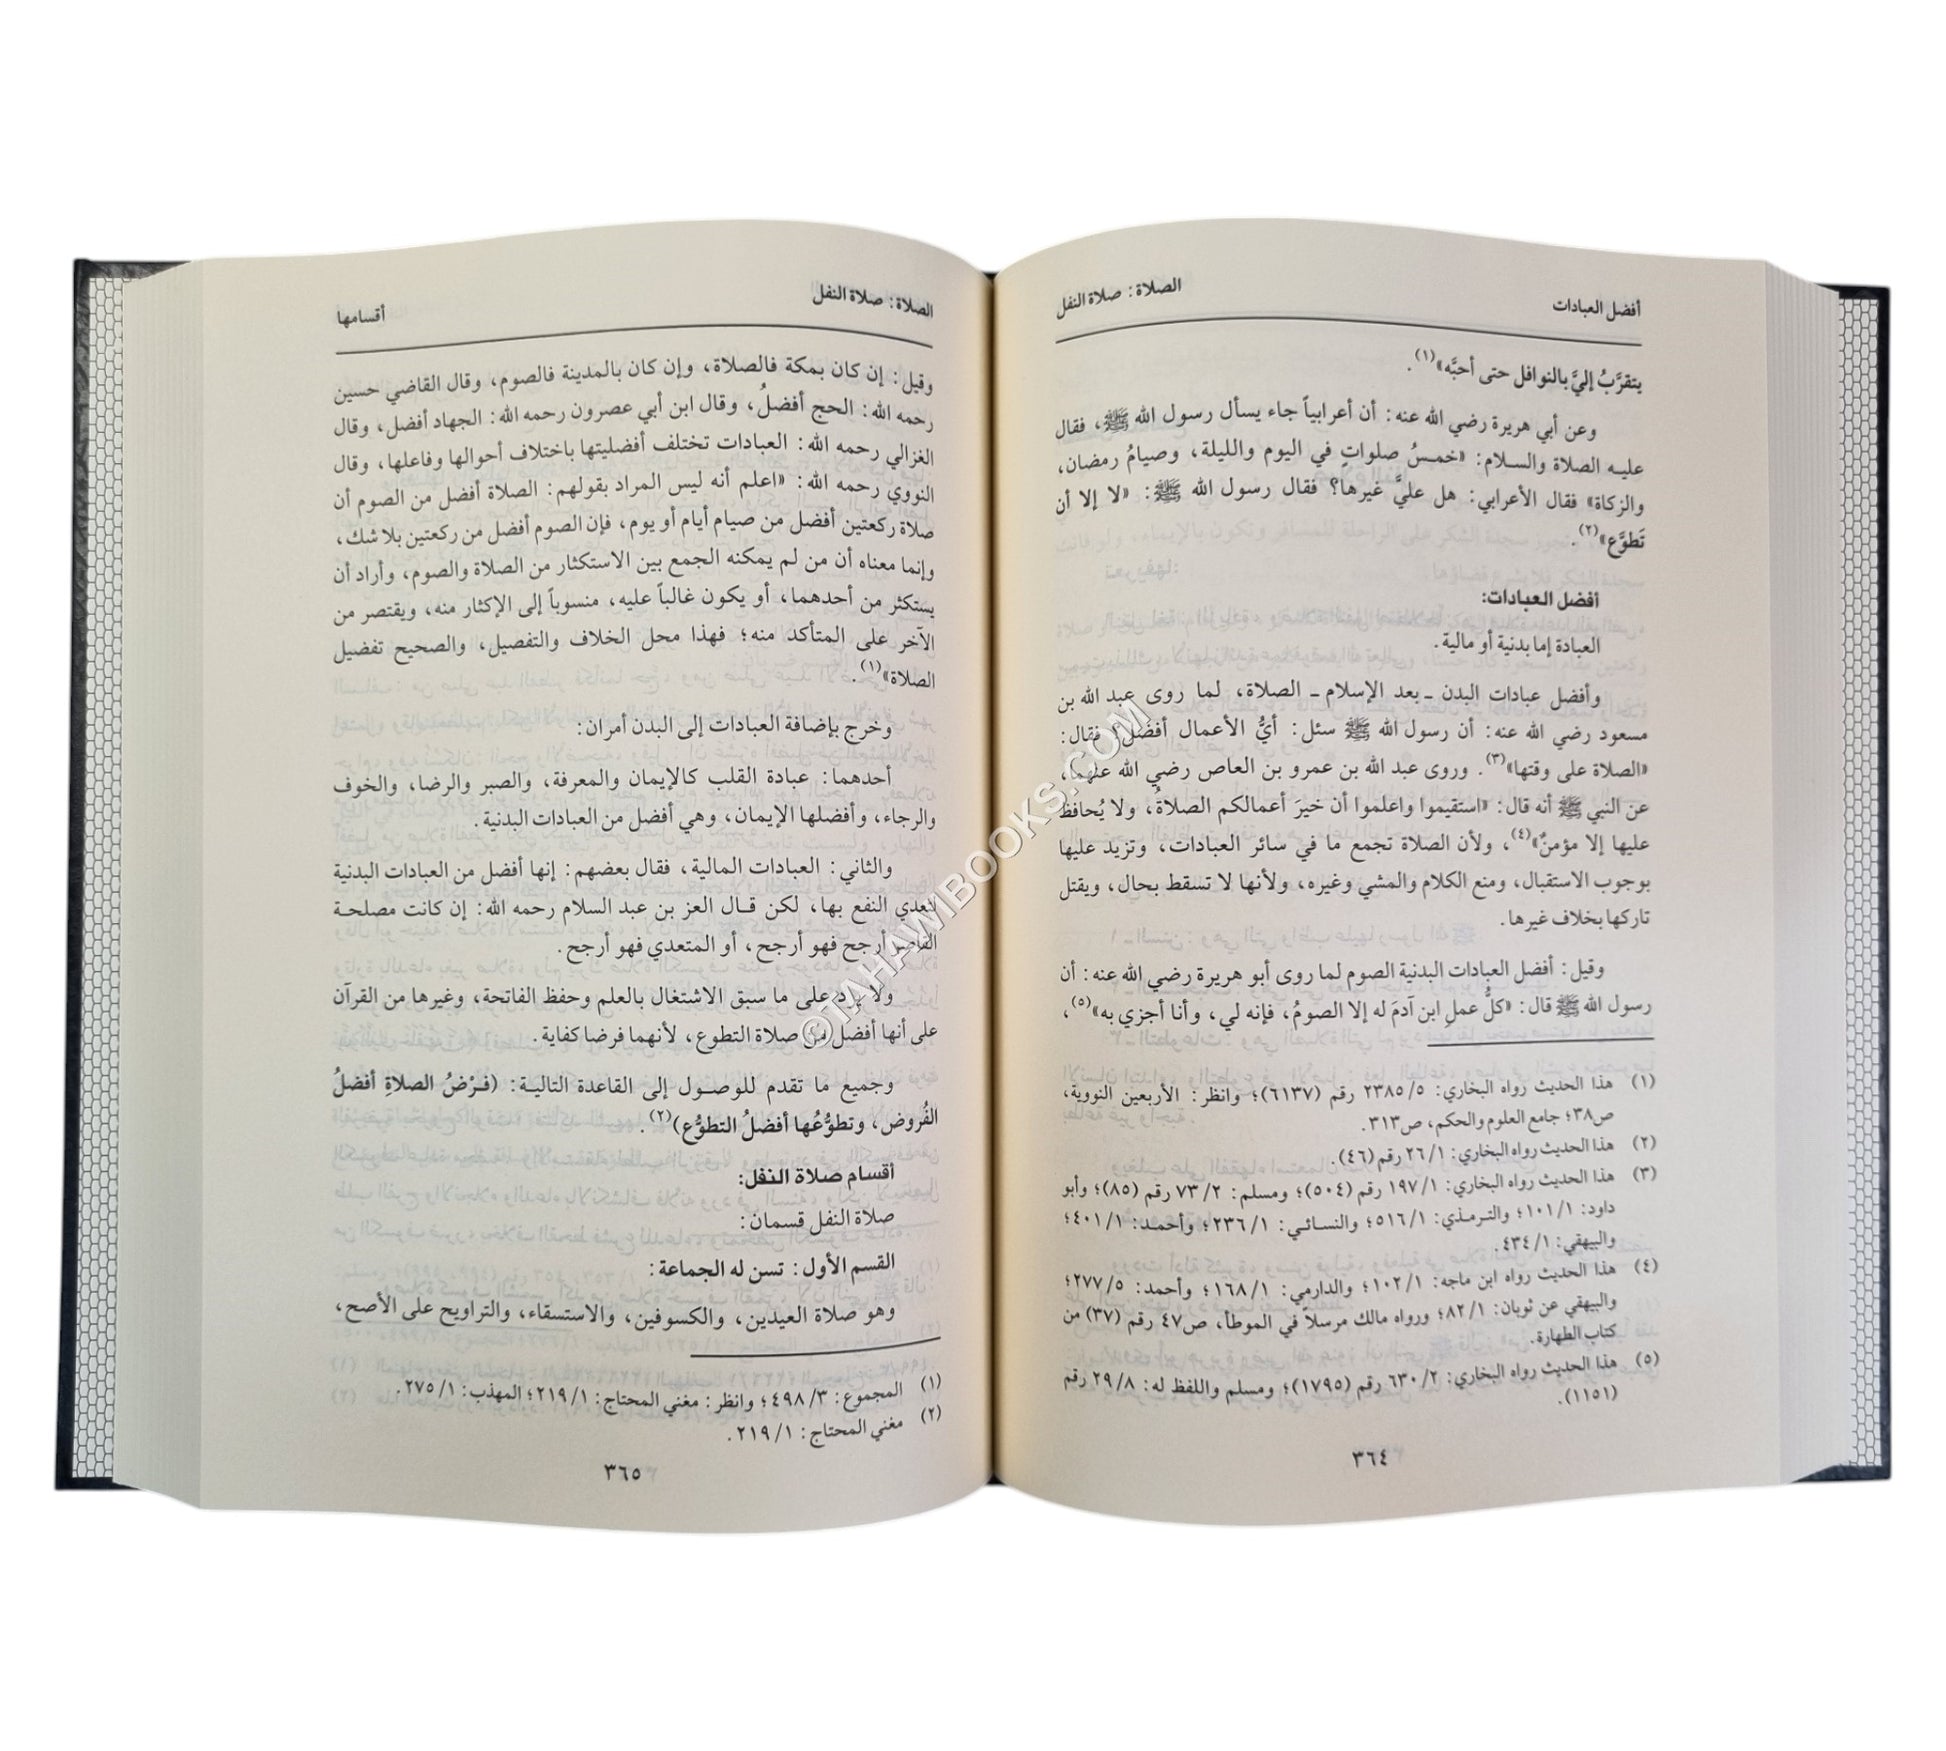 أفضل العبادات
الصلاة: صلاة النفل
يتقرَّبُ إليَّ بالنوافل حتى أحبَّه»(١).
وعن أبي هريرة رضي الله عنه: أن أعرابياً جاء يسأل رسول الله ﷺ، فقال
عليه الصلاة والسلام: «خمسُ صلواتٍ في اليوم والليلة، وصيامُ رمضان،
والزكاة» فقال الأعرابي: هل عليَّ غيرها؟ فقال رسول الله ﷺ: «لا إلا أن
تَطوَّع»(٢).
أفضل العبادات:
العبادة إما بدنية أو مالية.
وأفضل عبادات البدن ـ بعد الإسلام ـ الصلاة، لما روى عبد الله بن
مسعود رضي الله عنه: أن رسول الله ﷺ سئل: أيُّ الأعمال أفضل؟ فقال:
«الصلاة على وقتها»(٣). وروى عبد الله بن عمرو بن العاص رضي الله عنهما،
عن النبي ﷺ أنه قال: «استقيموا واعلموا أن خيرَ أعمالكم الصلاةُ، ولا يُحافظ
عليها إلا مؤمنٌ»(٤)، ولأن الصلاة تجمع ما في سائر العبادات، وتزيد عليها
بوجوب الاستقبال، ومنع الكلام والمشي وغيره، ولأنها لا تسقط بحال، ويقتل
تاركها بخلاف غيرها.
وقيل: أفضل العبادات البدنية الصوم لما روى أبو هريرة رضي الله عنه: أن
رسول الله ﷺ قال: «كلُّ عملِ ابن آدمَ له إلا الصومُ، فإنه لي، وأنا أجزي به»(٥)،
(١) هذا الحديث رواه البخاري: ٢٣٨٥/٥ رقم (٦١٣٧)؛ وانظر: الأربعين النووية،
ص٣٨؛ جامع العلوم والحكم، ص٣١٣.
(٢) هذا الحديث رواه البخاري: ٢٦/١ رقم (٤٦).
(٣) هذا الحديث رواه البخاري: ١٩٧/١ رقم (٥٠٤)؛ ومسلم: ٧٣/٢ رقم (٨٥)؛ وأبو
داود: ١٠١/١؛ والترمذي: ٥١٦/١؛ والنسائي: ٢٣٦/١؛ وأحمد: ٤٠١/١؛
والبيهقي: ٤٣٤/١.
(٤) هذا الحديث رواه ابن ماجه: ١٠٢/١؛ والدارمي: ١٦٨/١؛ وأحمد: ٢٧٧/٥؛
والبيهقي عن ثوبان: ٨٢/١؛ ورواه مالك مرسلاً في الموطأ، ص٤٧ رقم (٣٧) من
كتاب الطهارة.
(٥) هذا الحديث رواه البخاري: ٦٣٠/٢ رقم (١٧٩٥)؛ ومسلم واللفظ له: ٢٩/٨ رقم
(١١٥١).
٣٦٤
الصلاة: صلاة النفل
أقسامها
وقيل: إن كان بمكة فالصلاة، وإن كان بالمدينة فالصوم، وقال القاضي حسين
رحمه الله: الحج أفضلُ، وقال ابن أبي عصرون رحمه الله: الجهاد أفضل، وقال
الغزالي رحمه الله: العبادات تختلف أفضليتها باختلاف أحوالها وفاعلها، وقال
النووي رحمه الله: «اعلم أنه ليس المراد بقولهم: الصلاة أفضل من الصوم أن
صلاة ركعتين أفضل من صيام أيام أو يوم، فإن الصوم أفضل من ركعتين بلا شك،
وإنما معناه أن من لم يمكنه الجمع بين الاستكثار من الصلاة والصوم، وأراد أن
يستكثر من أحدهما، أو يكون غالباً عليه، منسوباً إلى الإكثار منه، ويقتصر من
الآخر على المتأكد منه؛ فهذا محل الخلاف والتفصيل، والصحيح تفضيل
الصلاة»(١).
وخرج بإضافة العبادات إلى البدن أمران:
أحدهما: عبادة القلب كالإيمان والمعرفة، والصبر والرضا، والخوف
والرجاء، وأفضلها الإيمان، وهي أفضل من العبادات البدنية.
والثاني: العبادات المالية، فقال بعضهم: إنها أفضل من العبادات البدنية
لتعدي النفع بها، لكن قال العز بن عبد السلام رحمه الله: إن كانت مصلحة
القاصر أرجح فهو أرجح، أو المتعدي فهو أرجح.
ولا يرد على ما سبق الاشتغال بالعلم وحفظ الفاتحة، وغيرها من القرآن
على أنها أفضل من صلاة التطوع، لأنهما فرضا كفاية.
وجميع ما تقدم للوصول إلى القاعدة التالية: (فرْضُ الصلاةِ أفضلُ
الفُروض، وتطوُّعُها أفضلُ التطوُّع)(٢).
أقسام صلاة النفل:
صلاة النفل قسمان:
القسم الأول: تسن له الجماعة:
وهو صلاة العيدين، والكسوفين، والاستسقاء، والتراويح على الأصح،
(١) المجموع: ٤٩٨/٣؛ وانظر: مغني المحتاج: ٢١٩/١؛ المهذب: ٢٧٥/١.
(٢) مغني المحتاج: ٢١٩/١.
٣٦٥
©TAHAWIBOOKS.COM